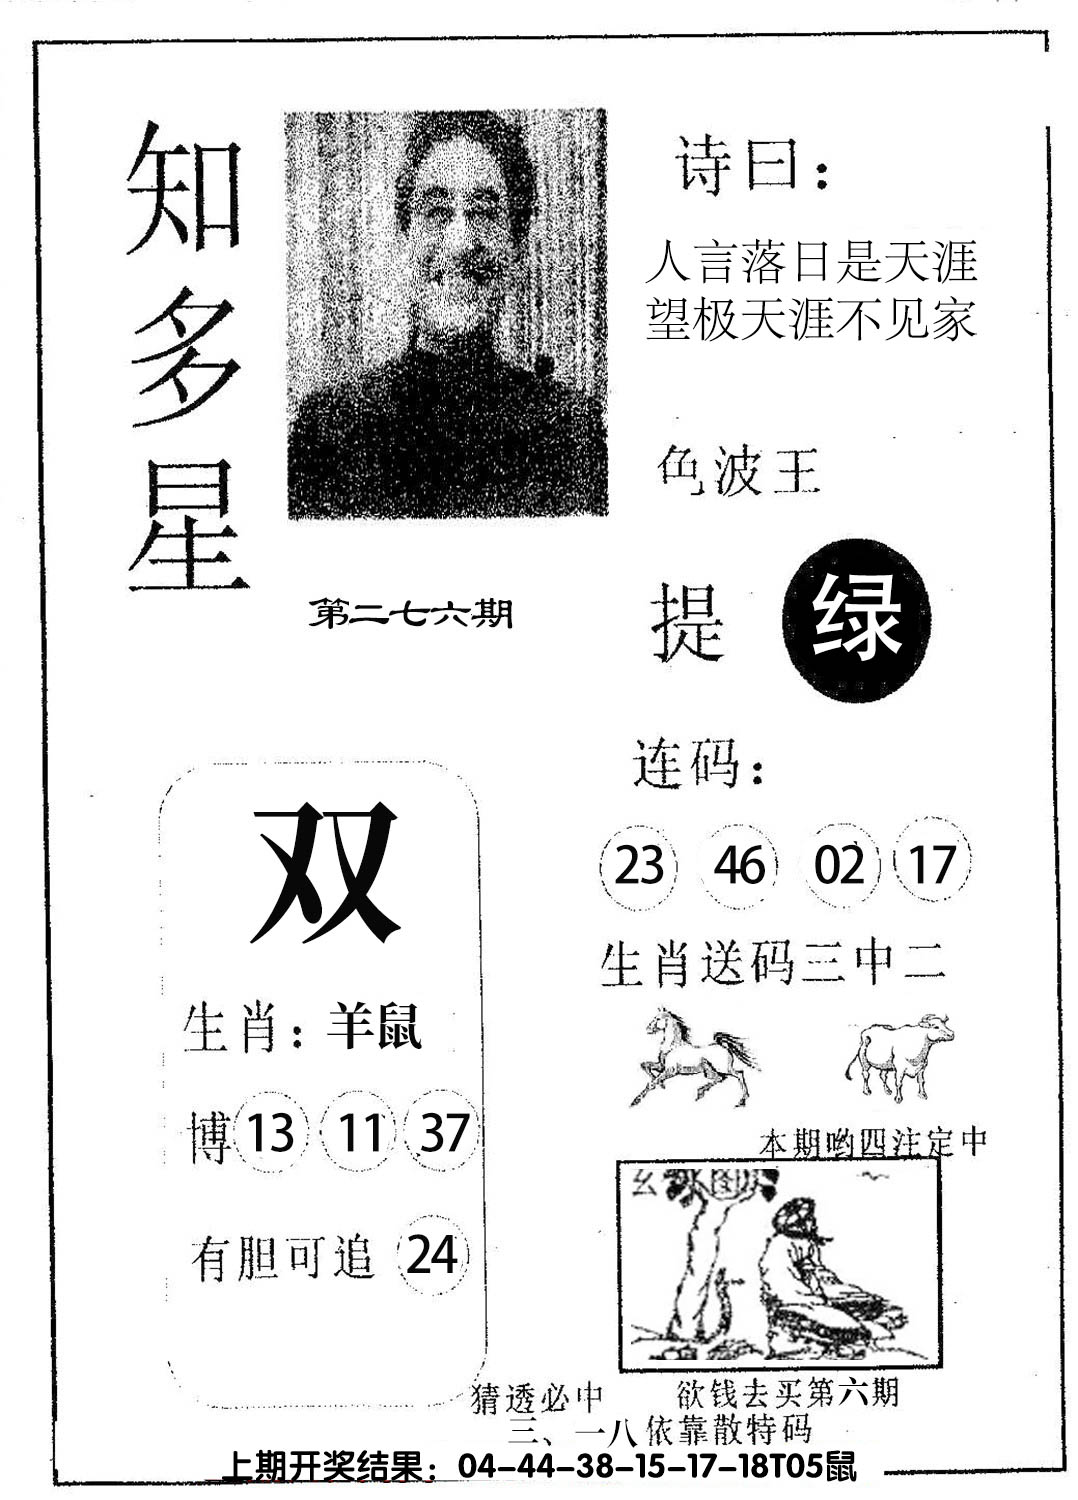 知多星
诗曰：
人言落日是天涯
望极天涯不见家
色波王
提 绿
第二七六期
连码：
23 46 02 17
生肖送码三中二
双
生肖：羊鼠
博 13 11 37
有胆可追 24
本期哟四注定中
玄 图
猜透必中 欲钱去买第六期
三、一八依靠散特码
上期开奖结果：04-44-38-15-17-18T05鼠